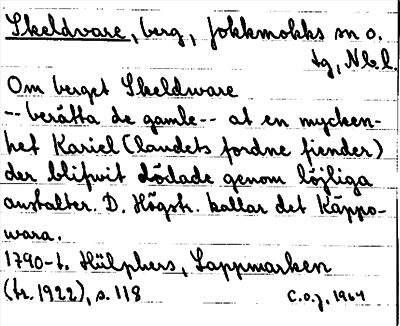 Skeldvare, berg, Jokkmokks sn o.
tg, Nb.l.
Om berget Skeldware
-- berätta de gamle -- at en mycken-
het Kariel (landets fordne fiender)
der blifwit dödade genom löjliga
anstalter. D. Högstr. kallar det Käppo-
wara.
1790-t. Hülphers, Lappmarken
(tr. 1922), s. 118
C.O.J. 1964